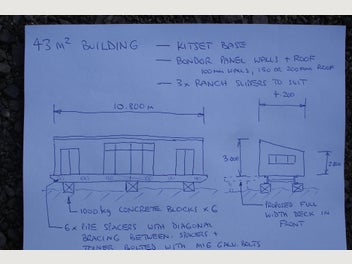 43 m² BUILDING
— KITSET BASE
— BONDOR PANEL WALLS + ROOF
100mm WALLS, 150 OR 200mm ROOF
— 3x RANCH SLIDERS TO SUIT
10.800 m
4.200
3.000
1000 kg CONCRETE BLOCKS x 6
PROPOSED FULL
WIDTH DECK IN
FRONT
6x PIPE SPACERS WITH DIAGONAL
BRACING BETWEEN SPACERS +
BOLTED WITH M16 GALV. BOLTS